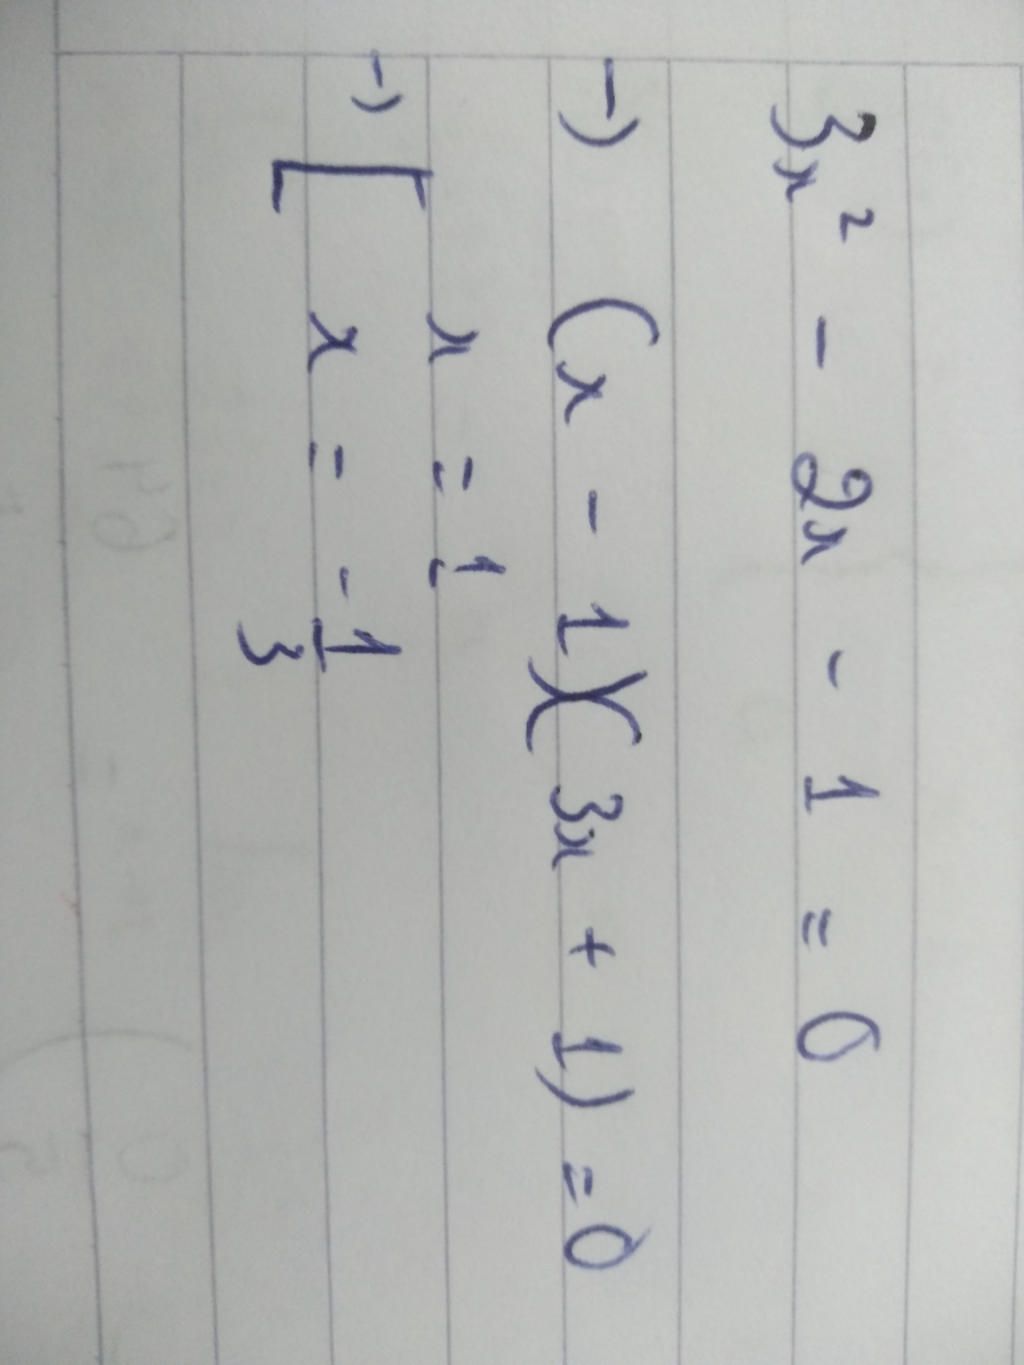 3x² - 2x - 1 = 0
→ (x - 1)(3x + 1) = 0
→ [ x = 1
x = -1/3